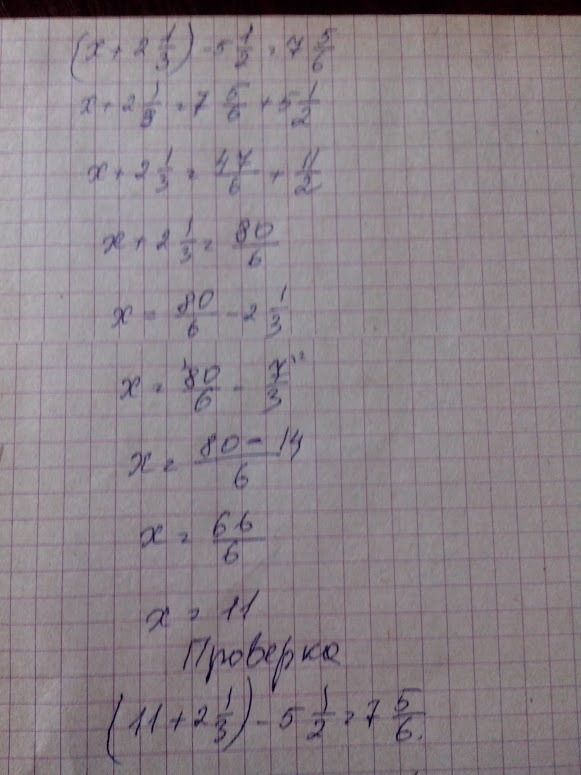 (x + 2 1/3) - 5 1/2 = 7 5/6
x + 2 1/3 = 7 5/6 + 5 1/2
x + 2 1/3 = 47/6 + 11/2
x + 2 1/3 = 80/6
x = 80/6 - 2 1/3
x = 80/6 - 7/3
x = (80 - 14)/6
x = 66/6
x = 11
Проверка
(11 + 2 1/3) - 5 1/2 = 7 5/6.